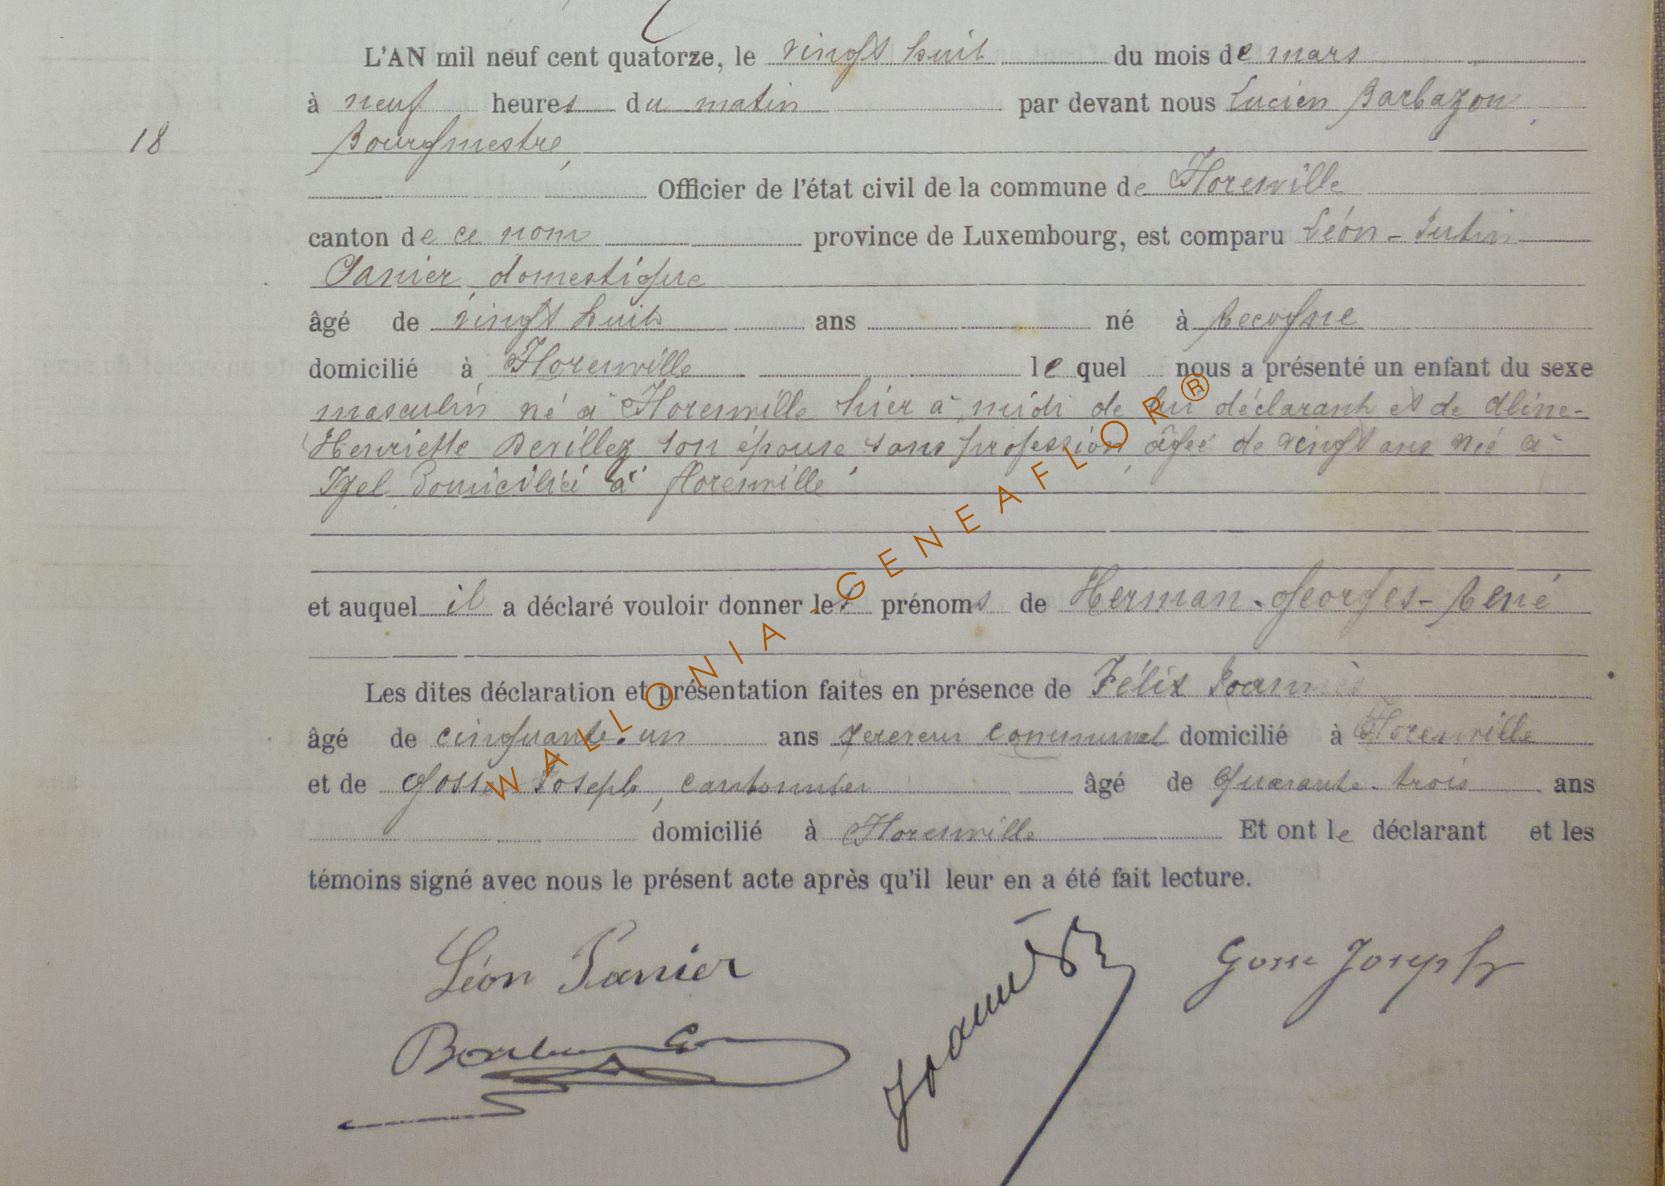 L'AN mil neuf cent quatorze, le vingt huit du mois de mars
à neuf heures du matin par devant nous Lucien Barbazon,
18 Bourgmestre,
Officier de l'état civil de la commune de Florenville
canton de ce nom province de Luxembourg, est comparu Léon-
Panier, domestique
âgé de vingt huit ans né à Recogne
domicilié à Florenville lequel nous a présenté un enfant du sexe
masculin né à Florenville hier à midi de lui déclarant et de Aline-
Henriette son épouse sans profession, âgée de vingt ans né à
Izel, domicilié à Florenville
et auquel il a déclaré vouloir donner les prénoms de Herman-Georges-René
Les dites déclaration et présentation faites en présence de Félix Joannès
âgé de cinquante-un ans receveur communal domicilié à Florenville
et de Gosse Joseph, cantonnier âgé de quarante-trois ans
domicilié à Florenville Et ont le déclarant et les
témoins signé avec nous le présent acte après qu'il leur en a été fait lecture.
Léon Panier
Joannès
Gosse Joseph
Barbazon
WALLONIA - GENEAFLOR®